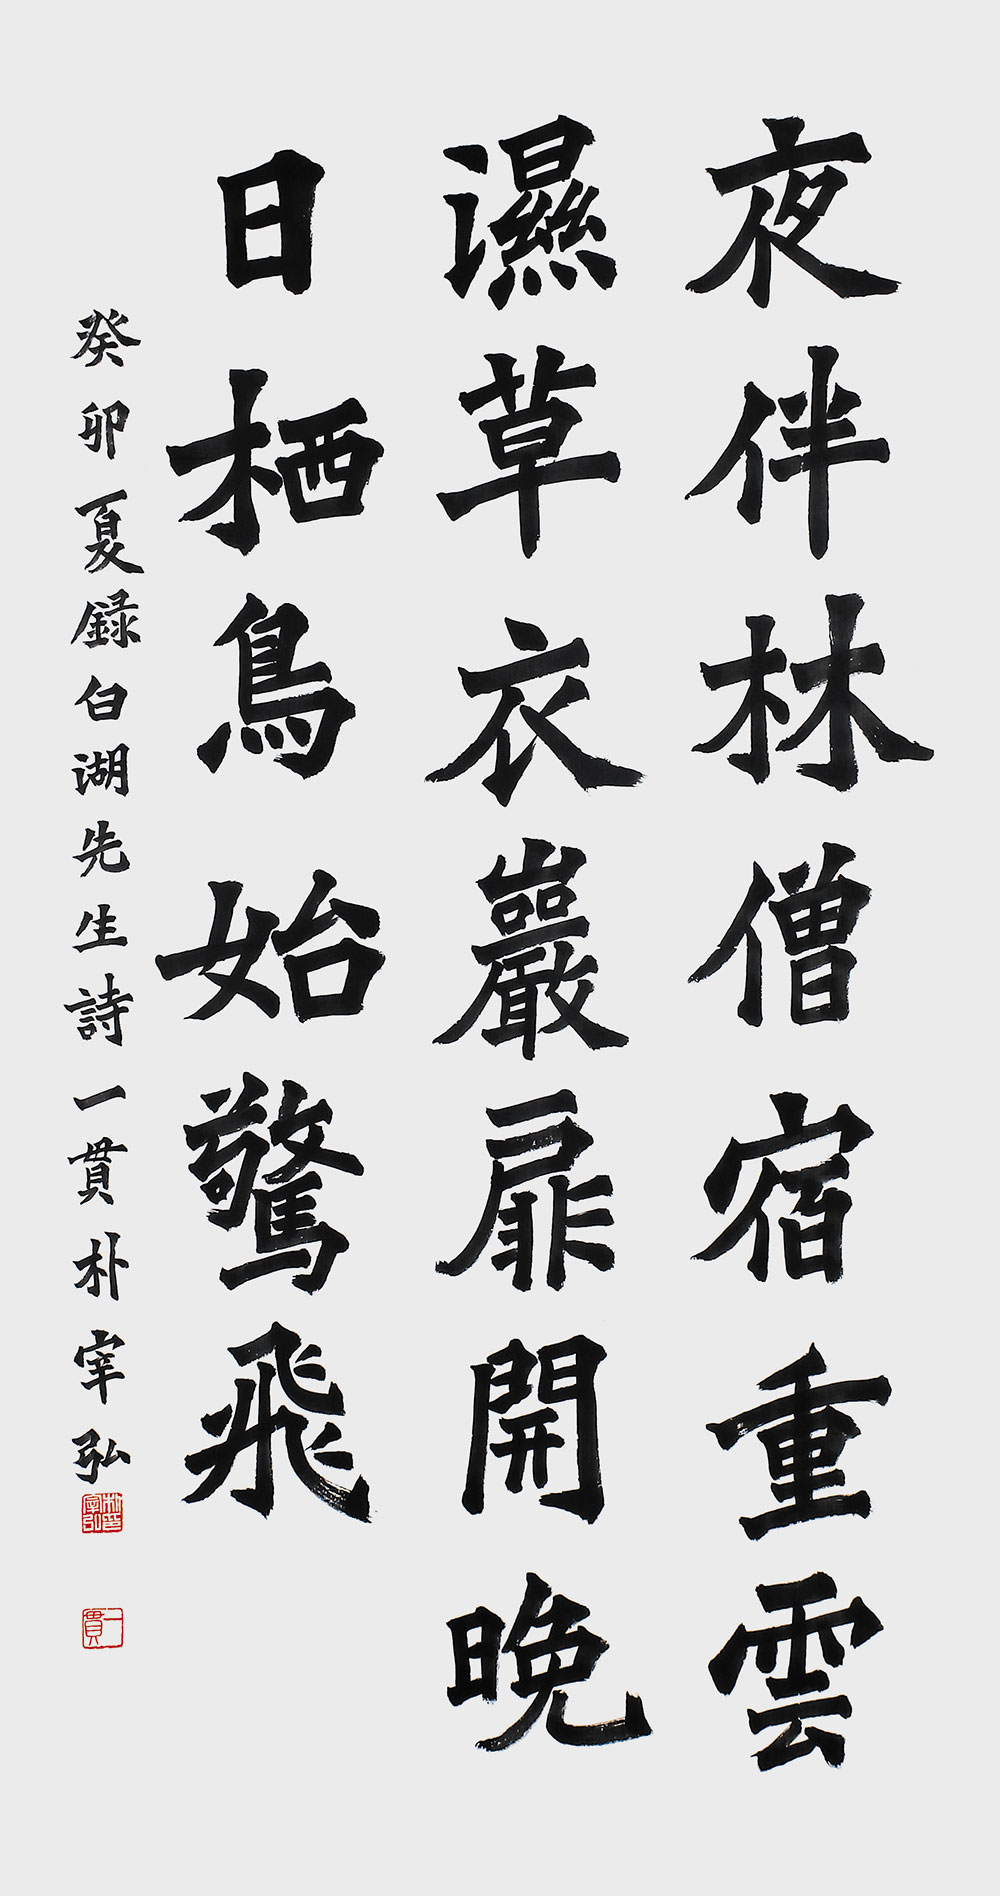 夜伴林僧宿重雲
濕草衣巖扉開晩
日栖鳥始驚飛
癸卯夏錄白湖先生詩一貫朴宰弘
朴宰弘印
一貫